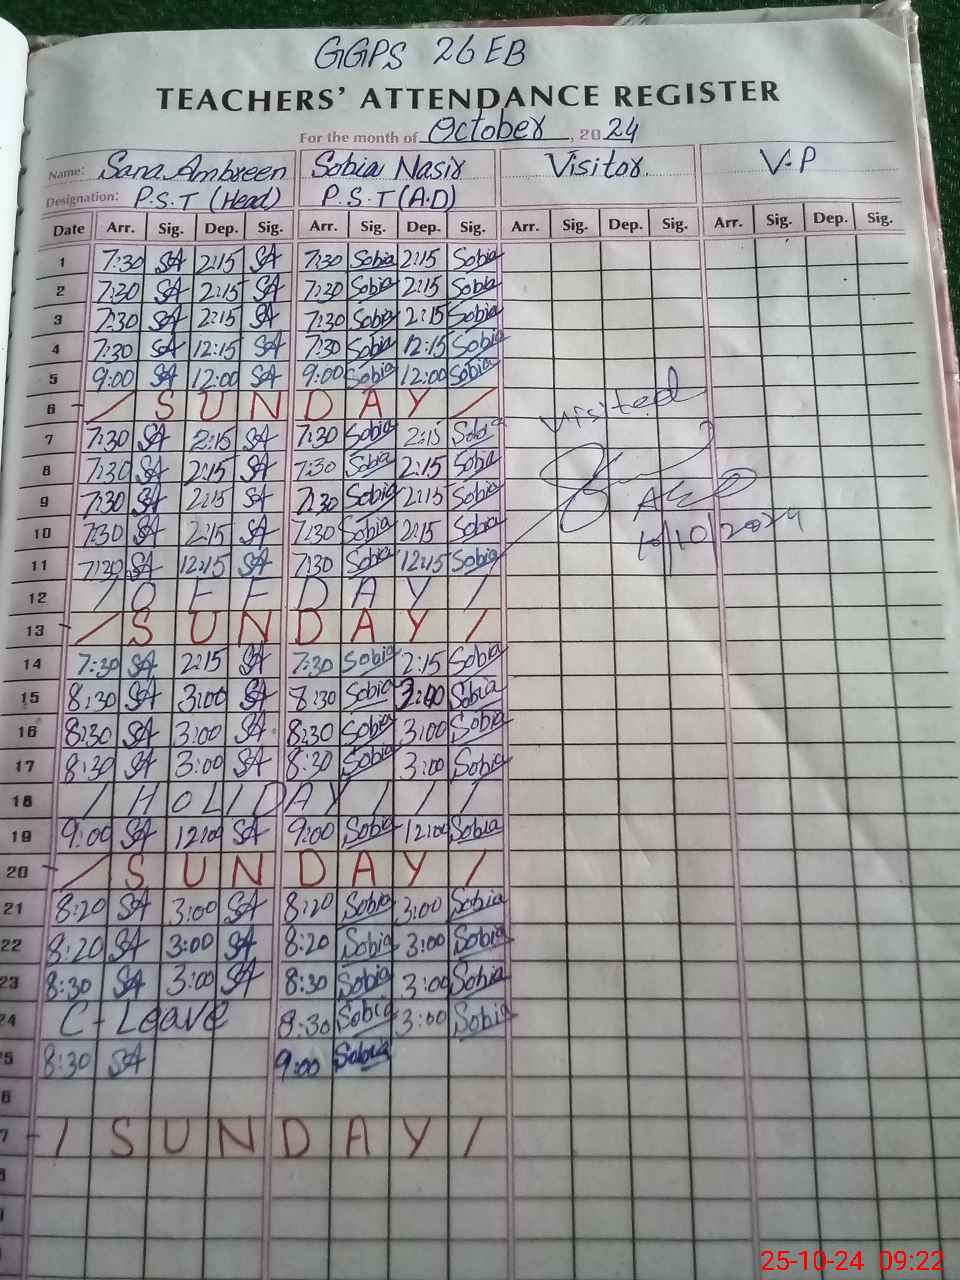 GGPS 26 EB
TEACHERS' ATTENDANCE REGISTER
For the month of October, 2024
Name: Sana Ambreen Sobia Nasir Visitor V.P
Designation: P.S.T (Head) P.S.T (A.D)
Date Arr. Sig. Dep. Sig. Arr. Sig. Dep. Sig. Arr. Sig. Dep. Sig. Arr. Sig. Dep. Sig.
1 7:30 SA 2:15 SA 7:30 Sobia 2:15 Sobia
2 7:30 SA 2:15 SA 7:30 Sobia 2:15 Sobia
3 7:30 SA 2:15 SA 7:30 Sobia 2:15 Sobia
4 7:30 SA 12:15 SA 7:30 Sobia 12:15 Sobia
5 9:00 SA 12:00 SA 9:00 Sobia 12:00 Sobia
6 / S U N D A Y /
Visited
7 7:30 SA 2:15 SA 7:30 Sobia 2:15 Sobia
8 7:30 SA 2:15 SA 7:30 Sobia 2:15 Sobia
9 7:30 SA 2:15 SA 7:30 Sobia 2:15 Sobia
10 7:30 SA 2:15 SA 7:30 Sobia 2:15 Sobia
10/10/2024
11 7:30 SA 12:15 SA 7:30 Sobia 12:45 Sobia
12 / O F F D A Y /
13 / S U N D A Y /
14 7:30 SA 2:15 SA 7:30 Sobia 2:15 Sobia
15 8:30 SA 3:00 SA 8:30 Sobia 3:00 Sobia
16 8:30 SA 3:00 SA 8:30 Sobia 3:00 Sobia
17 8:30 SA 3:00 SA 8:30 Sobia 3:00 Sobia
18 / H O L I D A Y / / /
19 9:00 SA 12:00 SA 9:00 Sobia 12:00 Sobia
20 / S U N D A Y /
21 8:20 SA 3:00 SA 8:20 Sobia 3:00 Sobia
22 8:20 SA 3:00 SA 8:20 Sobia 3:00 Sobia
23 8:30 SA 3:00 SA 8:30 Sobia 3:00 Sobia
24 C-Leave 8:30 Sobia 3:00 Sobia
5 8:30 SA 9:00 Sobia
6
7 / S U N D A Y /
25-10-24 09:22